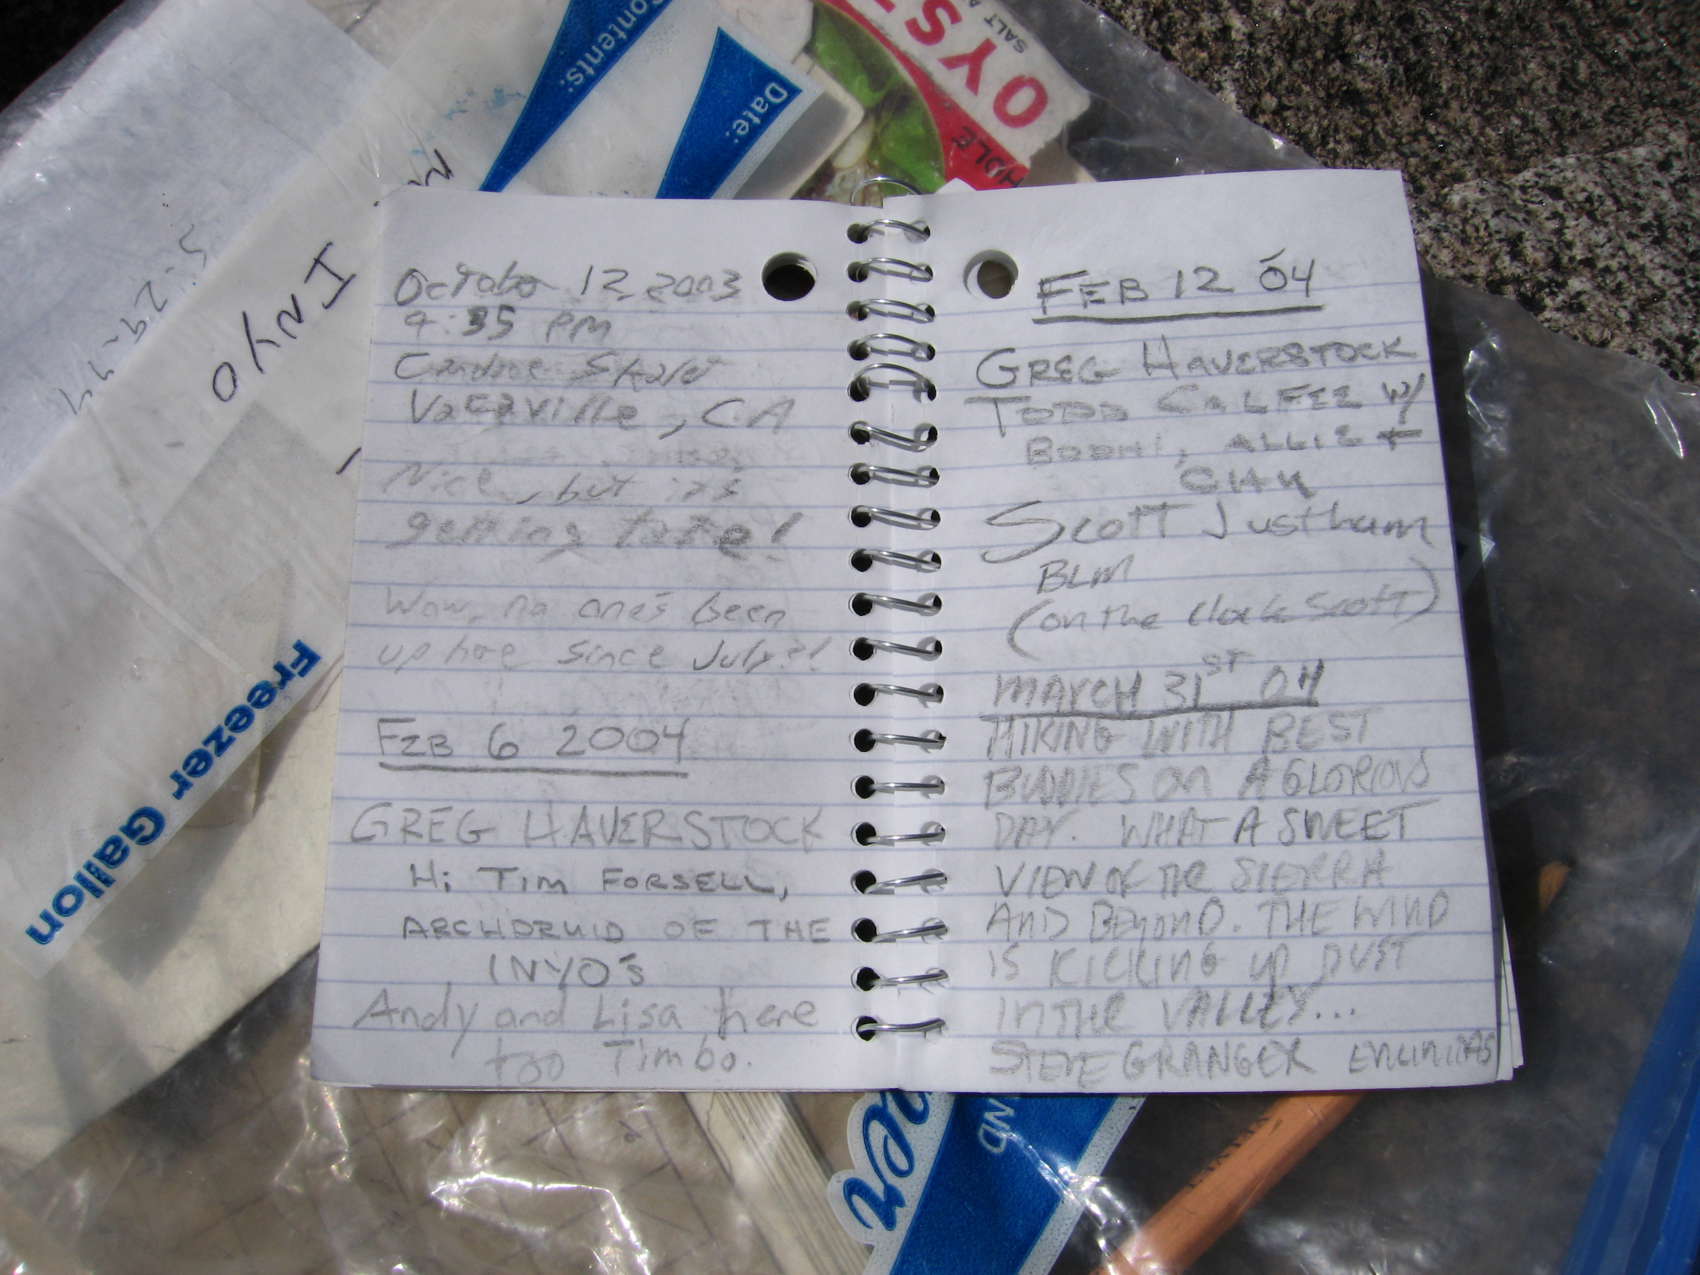 Contents:
Date:
OYST
SALT A
HOLE
INYO
5-29-99
Freezer Gallon
October 12, 2003
4:35 PM
Vacaville, CA
Nice, but it's
getting late!
Wow, no one's been
up here since July?!
FEB 6 2004
GREG HAVERSTOCK
Hi TIM FORSELL,
ARCHDRUID OF THE
INYO'S
Andy and Lisa here
too Timbo.
FEB 12 '04
GREG HAVERSTOCK
TODD CALFEE W/
BODHI, ALLIE +
Scott Justham
BLM
(on the clock Scott)
MARCH 31ST 04
HIKING WITH BEST
BUDDIES ON A GLORIOUS
DAY. WHAT A SWEET
VIEW OF THE SIERRA
AND BEYOND. THE WIND
IS KICKING UP DUST
IN THE VALLEY...
STEVE GRANGER ENCINITAS